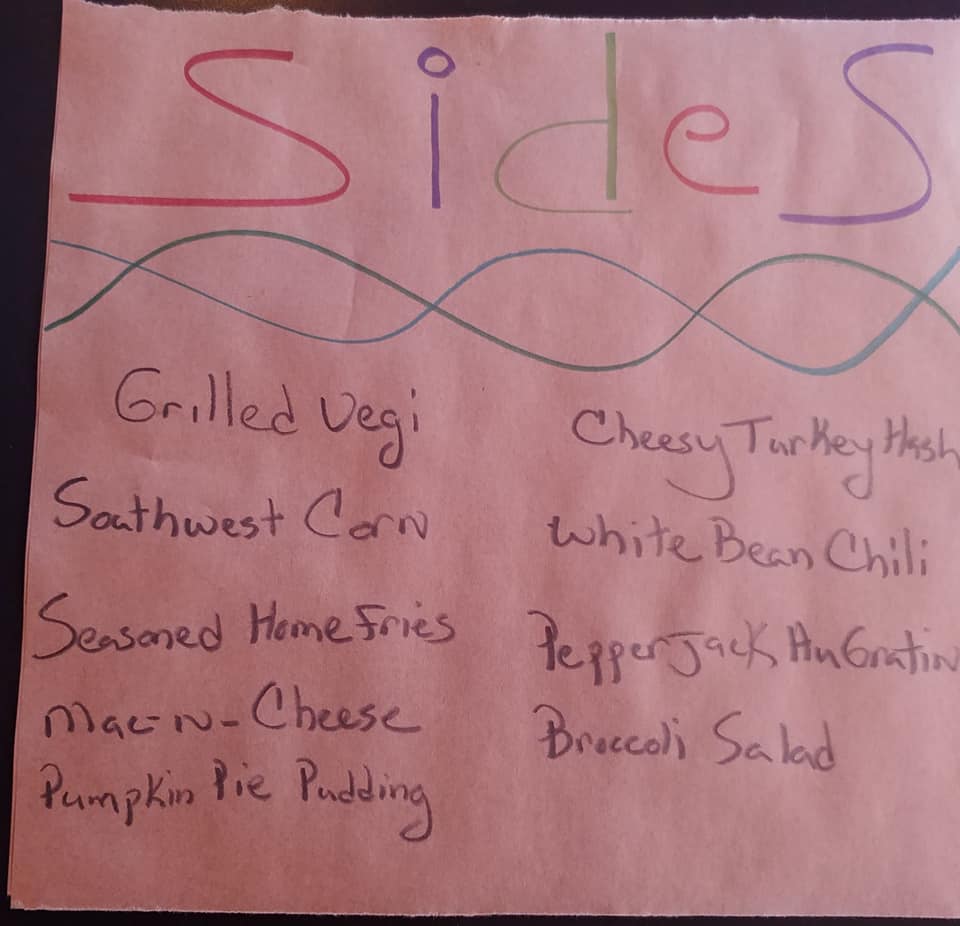 Sides
Grilled Vegi
Southwest Corn
Seasoned Home Fries
Mac-N-Cheese
Pumpkin Pie Pudding
Cheesy Turkey Hash
White Bean Chili
Pepper Jack Au Gratin
Broccoli Salad